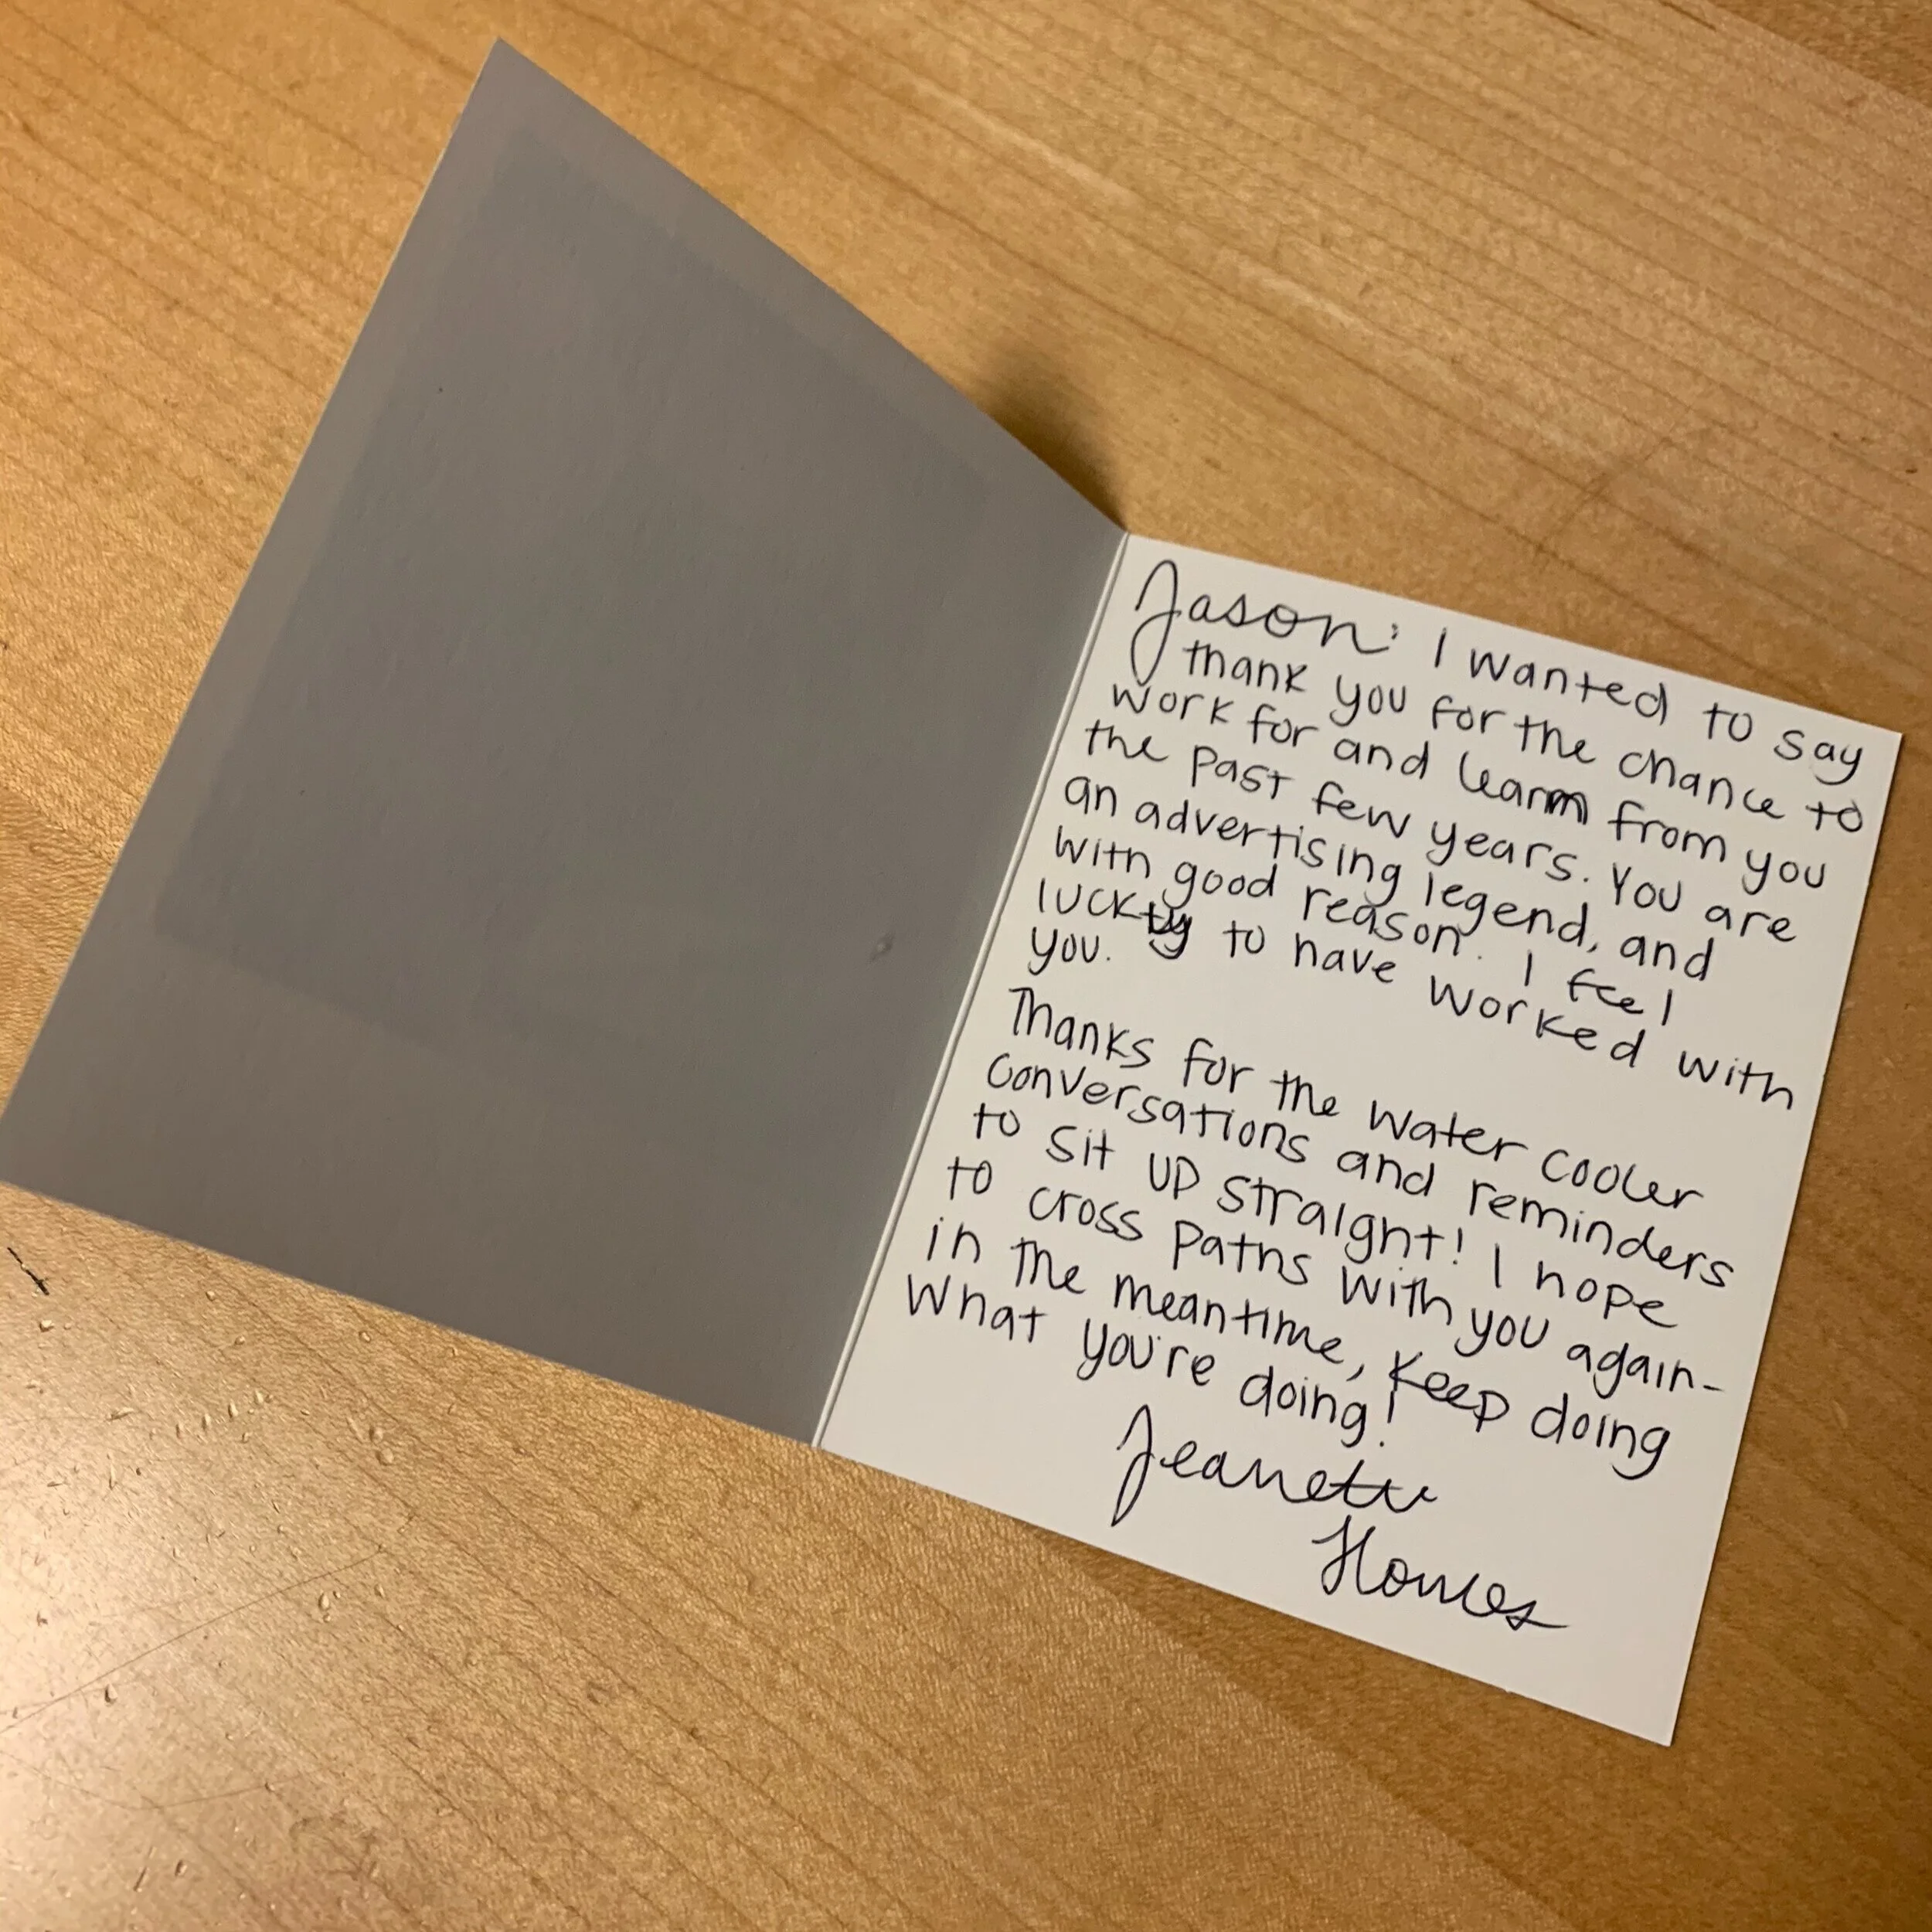 Jason: I wanted to say
thank you for the chance to
work for and learn from you
the past few years. You are
an advertising legend, and
with good reason. I feel
lucky to have worked with
you.
Thanks for the water cooler
conversations and reminders
to sit up straight! I hope
to cross paths with you again-
in the meantime, keep doing
what you're doing!
Jeanette